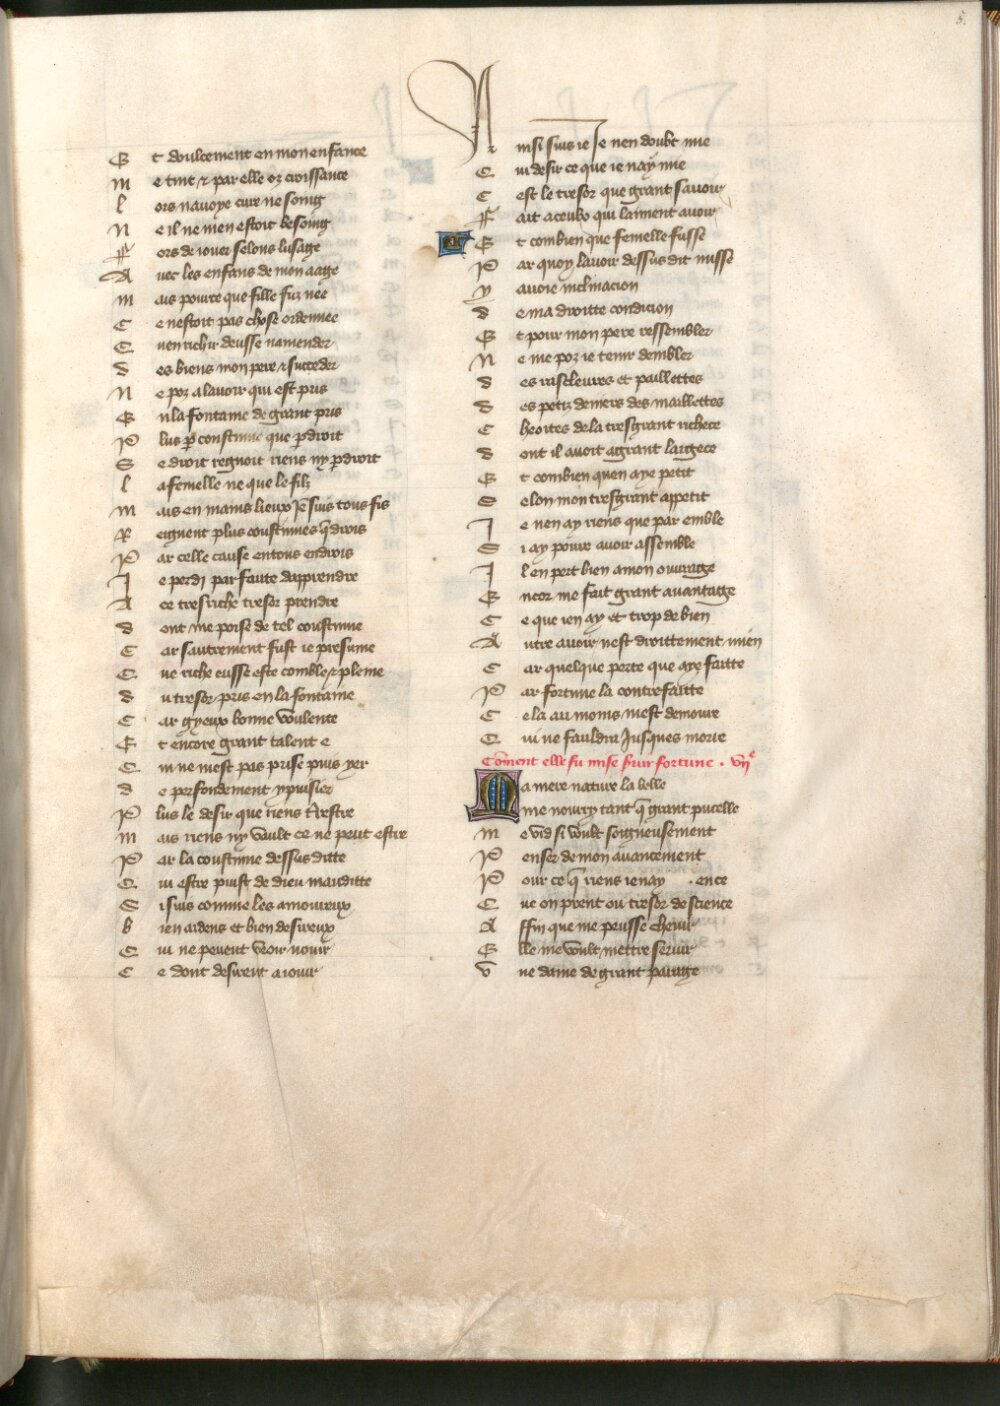 5.
Et doulcement en mon enfance
me tint & par elle oz croissance
lors navoye cure ne soing
ne il ne men estoit besoing
ffors de iouer selons lusage
Avec les enfans de mon aage
mais pource que fille fuz nee
Ce nestoit pas chose ordenee
Quen riens deusse namender
des biens mon pere & succeder
Ne poz a lavoir qui est pris
En la fontaine de grant pris
Plus p constume que p droit
Se droit regnoit riens ny pdroit
la femelle ne que le filz
mais en mains lieux Je suis tous fis
Reignent plus coustumes q drois
Par celle cause en tous endrois
Je perdi par faute dapprendre
A ce tres riche tresor prendre
dont me poise de tel coustume
Car sautrement fust ie presume
Que riche eusse este comble & pleine
du tresor pris en la fontaine
Car gy eux bonne voulente
Et encore grant talent e
Qui ne mest pas prise puis yer
de perfondement y puisier
Plus le desir que riens trestre
mais riens ny vault ce ne peut estre
Par la coustume dessus ditte
Qui estre puist de dieu mauditte
Si suis comme les amoureux
bien ardens et bien desireux
Qui ne peuent veoir nouir
Ce dont desirent a iouir
Ainsi suis ie Je nen doubt mie
Qui desir ce que ie nay mie
Cest le tresor que grant savoir
ffait a ceulx qui laiment avoir
Et combien que femelle fusse
Par quoy lavoir dessus dit nusse
y avoie inclinacion
de ma droitte condicion
Et pour mon pere ressembler
Ne me poz ie tenir dembler
des rascleures et paillettes
des petiz deniers des maillettes
Cheoites de la tresgrant richece
dont il avoit a grant largece
Et combien quen aye petit
Selon mon tresgrant appetit
Je nen ay riens que par emble
Si ay povre avoir assemble
Il en pert bien a mon ouvrage
Encor me fait grant avantage
Ce que ien ay et trop de bien
Autre avoir nest droittement mien
Car quelque perte que aye faitte
Par fortune la contrefaitte
Cela au moins mest demoure
Qui ne fauldra Jusques morie
Coment elle fu mise servir fortune . vii e
Ma mere nature la belle
me nourry tant q grant pucelle
me vid si voult songneusement
Penser de mon avancement
Pour ce q riens ie nay . ence
Que on prent ou tresor de science
Affin que me peusse chevir
Elle me voult mettre servir
vne dame de grant parage